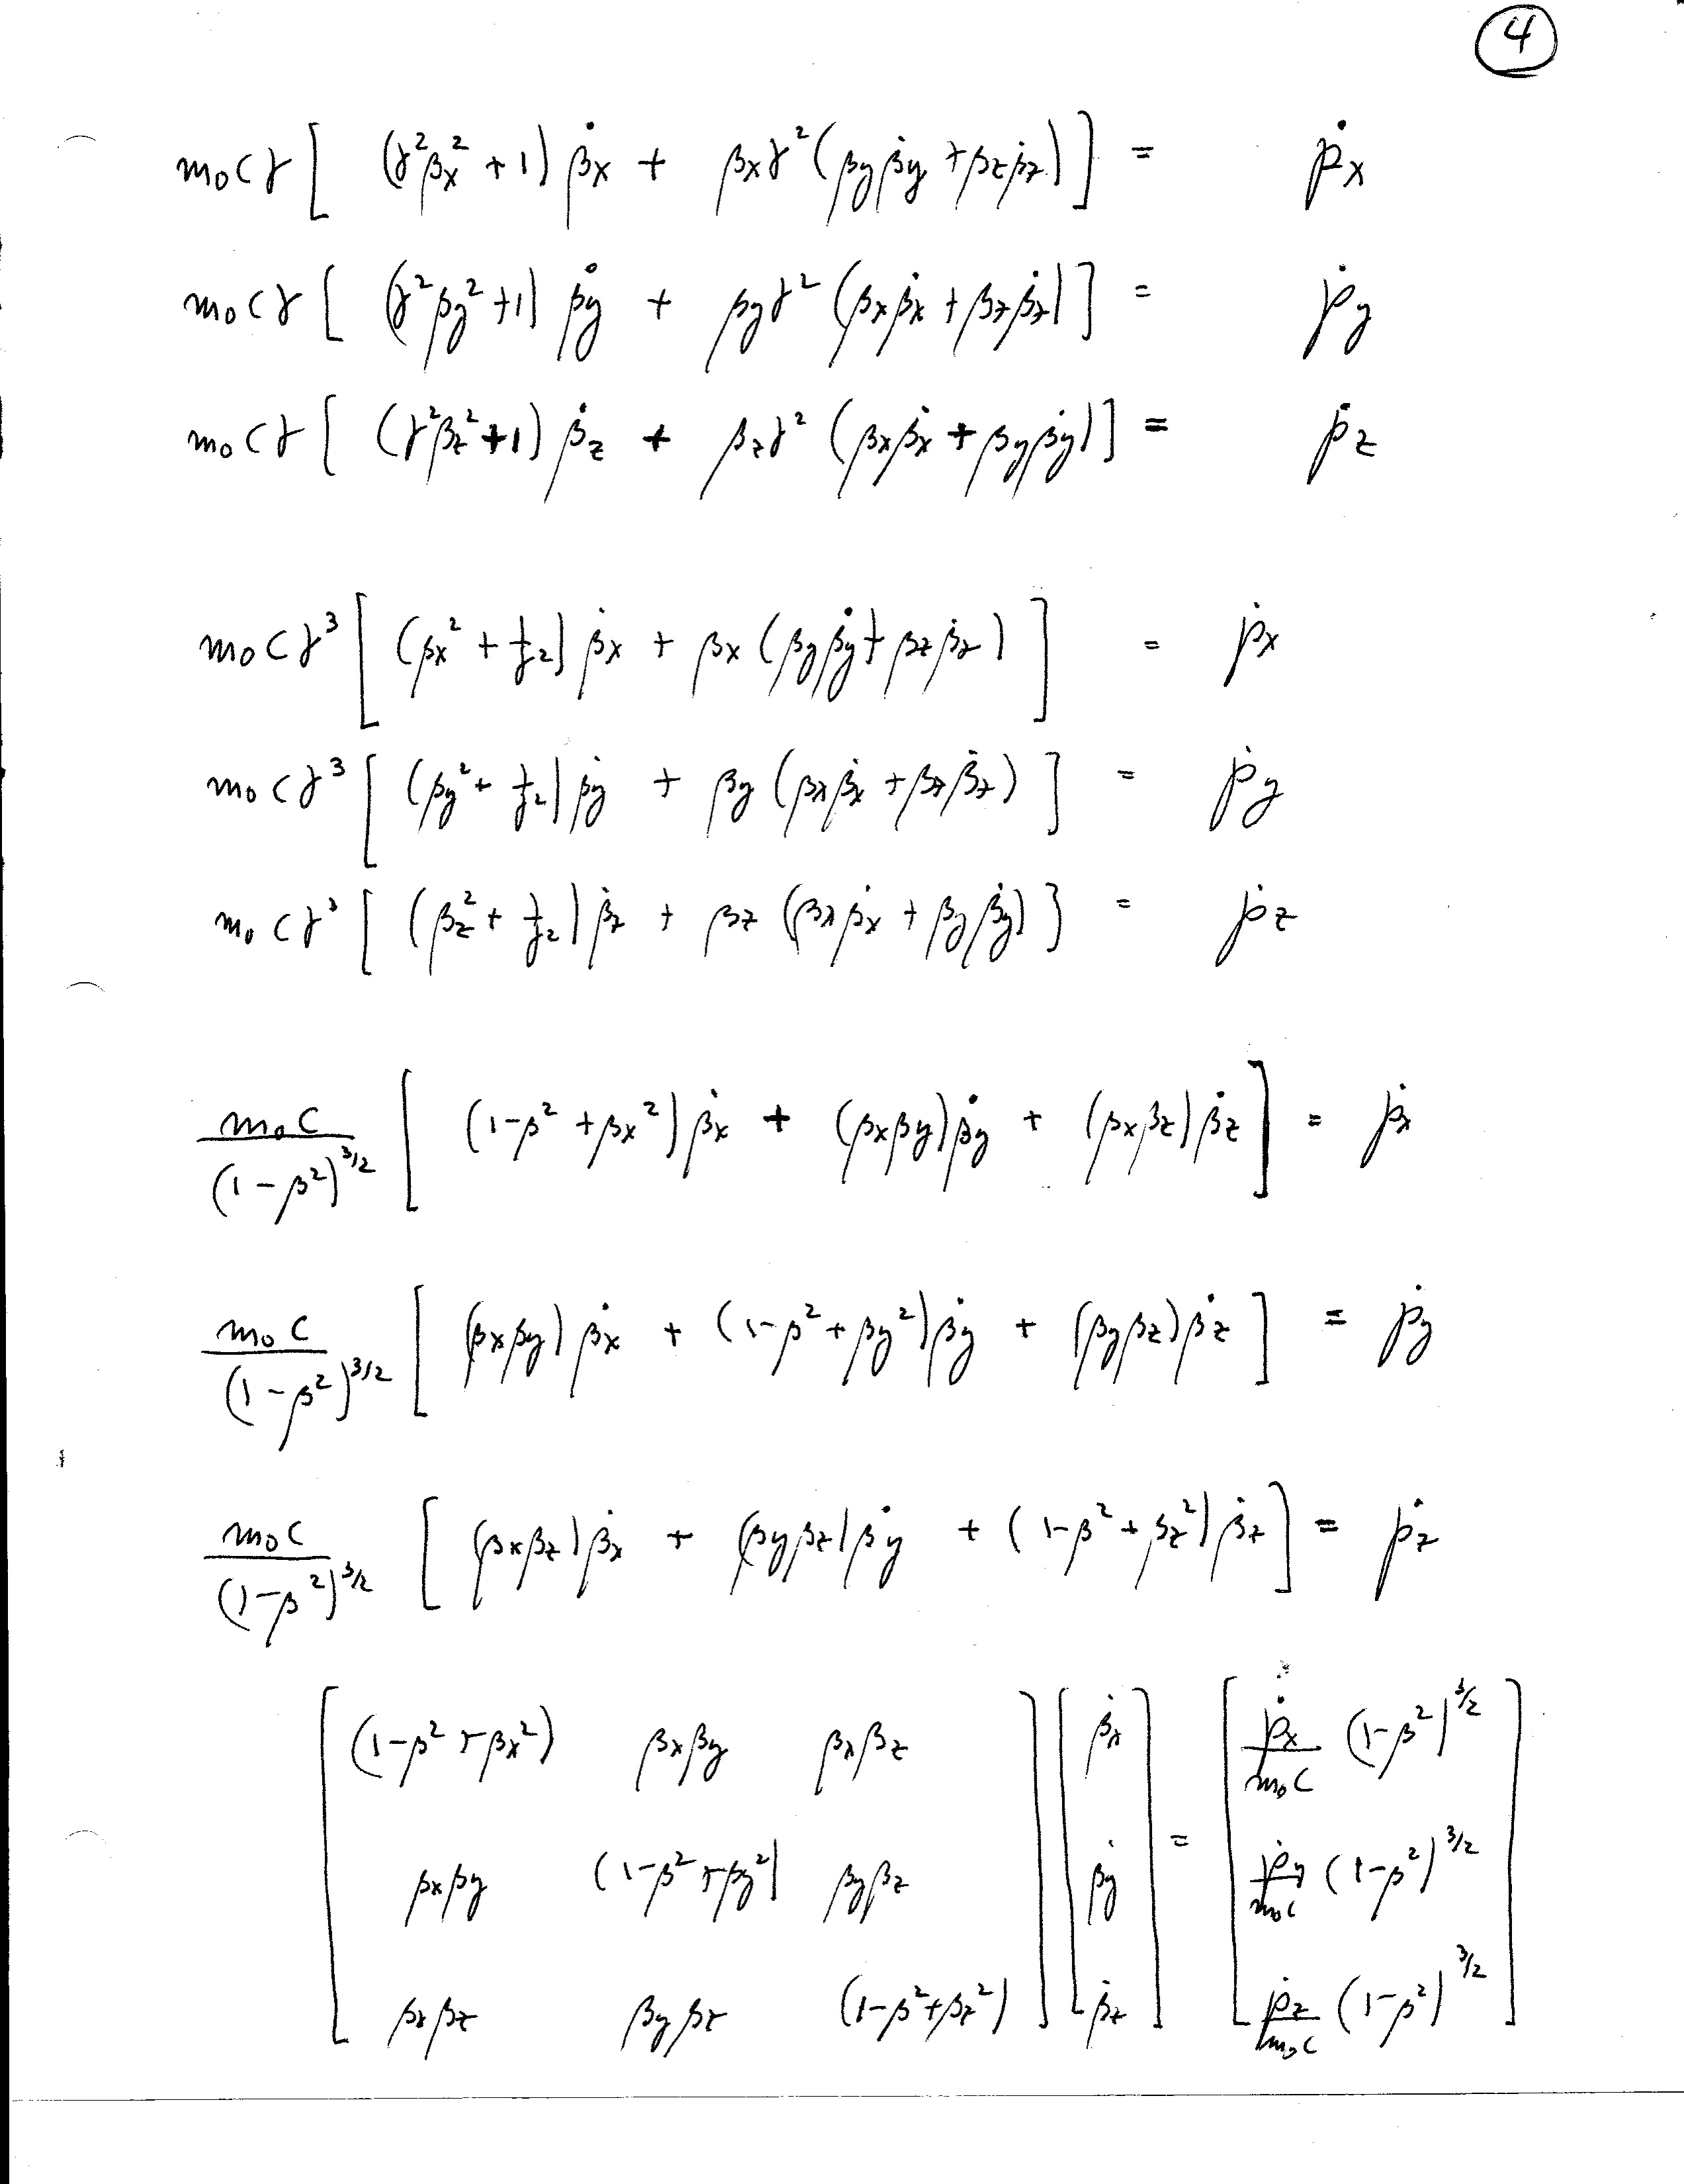 ④
m₀cγ [ (γ²βx² + 1) β̇x + βxγ² (βyβ̇y + βzβ̇z) ] = ṗx
m₀cγ [ (γ²βy² + 1) β̇y + βyγ² (βxβ̇x + βzβ̇z) ] = ṗy
m₀cγ [ (γ²βz² + 1) β̇z + βzγ² (βxβ̇x + βyβ̇y) ] = ṗz
m₀cγ³ [ (βx² + 1/γ²) β̇x + βx (βyβ̇y + βzβ̇z) ] = ṗx
m₀cγ³ [ (βy² + 1/γ²) β̇y + βy (βxβ̇x + βzβ̇z) ] = ṗy
m₀cγ³ [ (βz² + 1/γ²) β̇z + βz (βxβ̇x + βyβ̇y) ] = ṗz
m₀c / (1-β²)^3/2 [ (1-β² + βx²) β̇x + (βxβy) β̇y + (βxβz) β̇z ] = ṗx
m₀c / (1-β²)^3/2 [ (βxβy) β̇x + (1-β² + βy²) β̇y + (βyβz) β̇z ] = ṗy
m₀c / (1-β²)^3/2 [ (βxβz) β̇x + (βyβz) β̇y + (1-β² + βz²) β̇z ] = ṗz
[ (1-β²+βx²) βxβy βxβz ] [ β̇x ] = [ ṗx/m₀c (1-β²)^3/2 ]
[ βxβy (1-β²+βy²) βyβz ] [ β̇y ] = [ ṗy/m₀c (1-β²)^3/2 ]
[ βxβz βyβz (1-β²+βz²) ] [ β̇z ] = [ ṗz/m₀c (1-β²)^3/2 ]